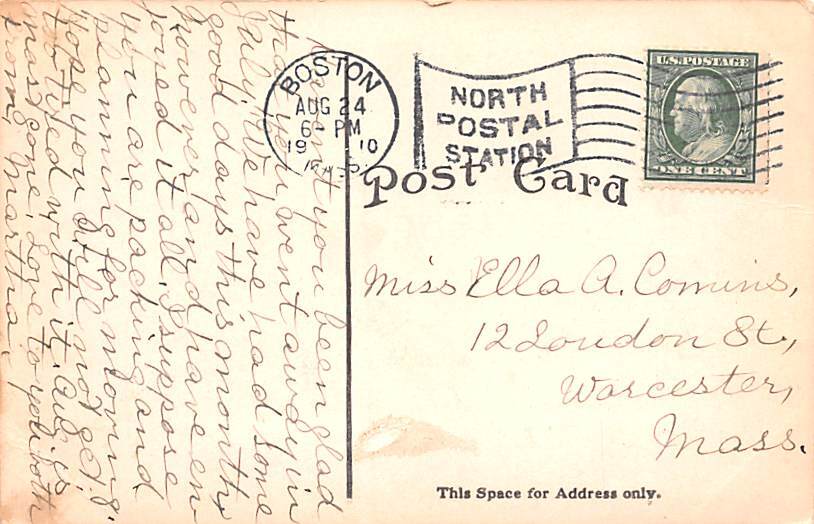 BOSTON
AUG 24
6- PM
19 10
NORTH
POSTAL
STATION
U.S. POSTAGE
ONE CENT
Post Card
Haven't you been glad
that you went away in
July. We have had some
good days this month
however and have en
joyed it all. I suppose
you are packing and
planning for moving.
Hope you will not get
too tired with it. Aug. is
most gone. Love to you both
from Martha.
Miss Ella A. Comins,
12 London St.,
Worcester,
Mass.
This Space for Address only.